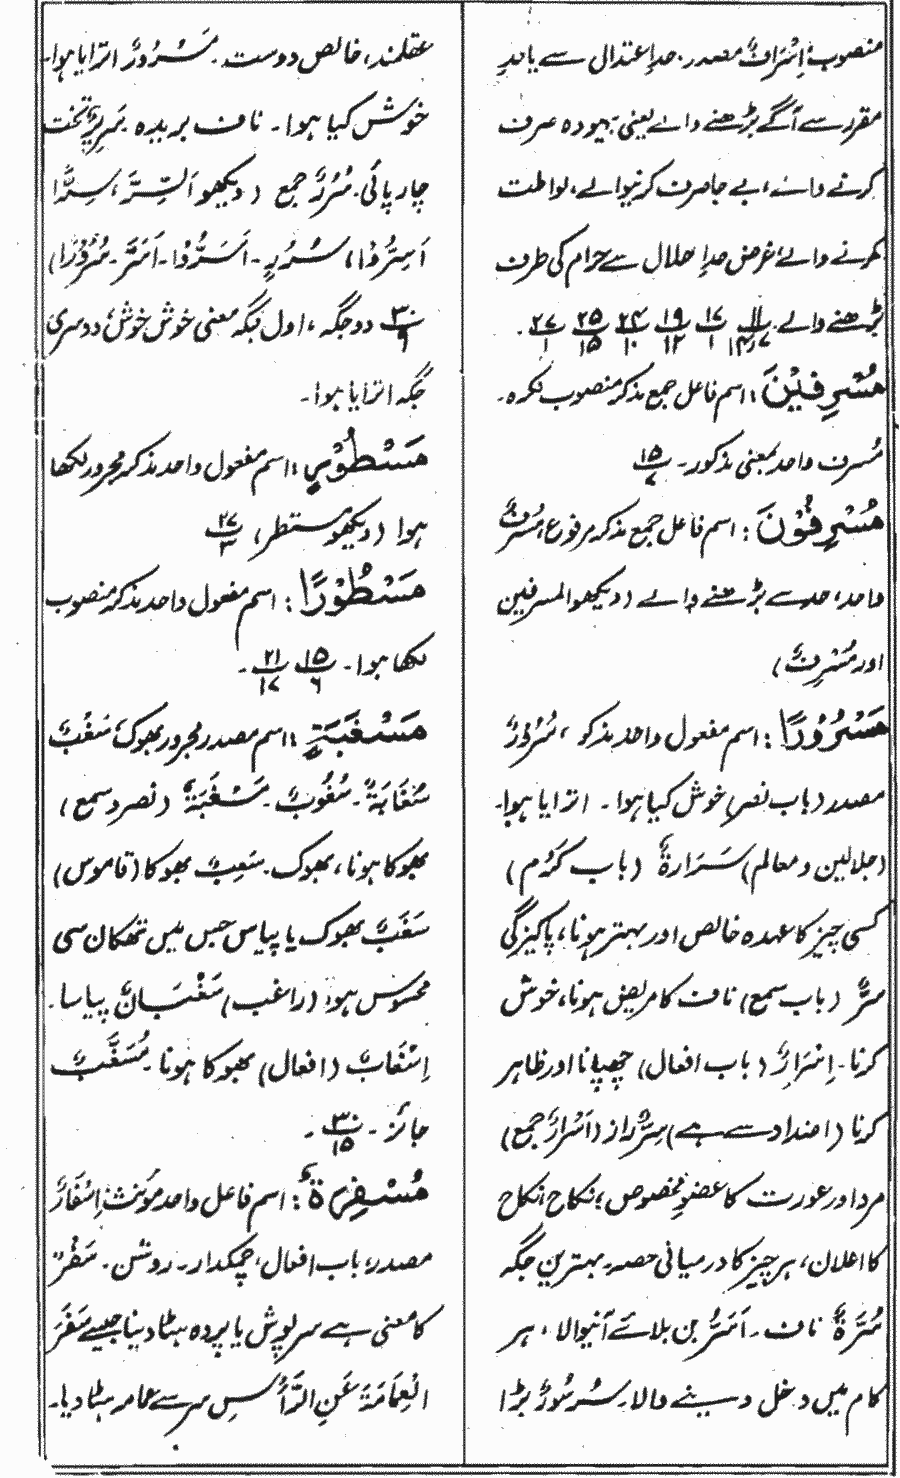 منصوب، اِسْرَافٌ مصدر. حدِاعتدال سے یا حدِ
مقرر سے آگے بڑھنے والے یعنی بیہودہ صرف
کرنے والے، بے جا صرف کرنیوالے، لواطت
کرنے والے، غرض حدِ حلال سے حرام کی طرف
بڑھنے والے۔ ۱۱ ۱۷/۱ ۱۹/۱۲ ۲۴/۱۰ ۲۵/۱۵ ۲۷/۱ ۔
مُسْرِفِیْنَ: اسم فاعل جمع مذکر منصوب نکرہ۔
مُسرف واحد بمعنی مذکور۔ ۱۵/۷
مُسْرِفُوْنَ: اسم فاعل جمع مذکر مرفوع، مُسْرِفٌ
واحد، حد سے بڑھنے والے (دیکھو المسرفین
اور مُسْرِفٌ)
مَسْرُوْرًا: اسم مفعول واحد مذکر، سُرُوْرٌ
مصدر (باب نصر) خوش کیا ہوا۔ اترایا ہوا۔
(جلالین و معالم) سَرَارَۃٌ (باب کَرُم)
کسی چیز کا عمدہ خالص اور بہتر ہونا، پاکیزگی
سَرٌّ (باب سمع) ناف کا مریض ہونا، خوش
کرنا۔ اِسْرَارٌ (باب افعال) چھپانا اور ظاہر
کرنا (اضداد سے ہے) سِرٌّ راز (اَسْرَارٌ جمع)
مرد اور عورت کا عضوِ مخصوص، نکاح، نکاح
کا اعلان، ہر چیز کا درمیانی حصہ۔ بہترین جگہ
سُرَّۃٌ ناف۔ اَسَرُّ بن بلائے آنیوالا، ہر
کام میں دخل دینے والا۔ سُرْسُوْرٌ بڑا
عقلمند، خالص دوست۔ مَسْرُوْرٌ اترایا ہوا۔
خوش کیا ہوا۔ ناف بریدہ۔ سَرِیْرٌ تخت
چارپائی۔ سُرُرٌ جمع (دیکھو اَلسِّرَّ، سِرًّا
اَسِرُّوْا، سُرُرٍ۔ اَسَرُّوْا۔ اَسَرَّ۔ سُرُوْرًا)
۳۰/۹ دو جگہ، اول جگہ معنی خوش خوش، دوسری
جگہ اترایا ہوا۔
مَسْطُوْرٍ: اسم مفعول واحد مذکر مجرور لکھا
ہوا (دیکھو مستطر) ۲۷/۳
مَسْطُوْرًا: اسم مفعول واحد مذکر منصوب
لکھا ہوا۔ ۱۵/۶ ۲۱/۱۷ ۔
مَسْغَبَۃٍ: اسم مصدر مجرور بھوک، سَغْبٌ
سَغَابَۃٌ۔ سُغُوْبٌ۔ مَسْغَبَۃٌ (نصر و سمع)
بھوکا ہونا، بھوک۔ سَغِبٌ بھوکا (قاموس)
سَغَبٌ بھوک یا پیاس جس میں تھکان سی
محسوس ہو (راغب) سَغْبَانٌ پیاسا۔
اِسْغَابٌ (افعال) بھوکا ہونا۔ مُسَغَّبٌ
جائز۔ ۳۰/۱۵ ۔
مُسْفِرَۃٌ: اسم فاعل واحد مؤنث اِسْفَارٌ
مصدر، باب افعال، چمکدار۔ روشن۔ سَفْرٌ
کا معنی ہے سرپوش یا پردہ ہٹا دینا جیسے سَفَرَ
الْعِمَامَۃَ عَنِ الرَّأْسِ سر سے عمامہ ہٹا دیا۔